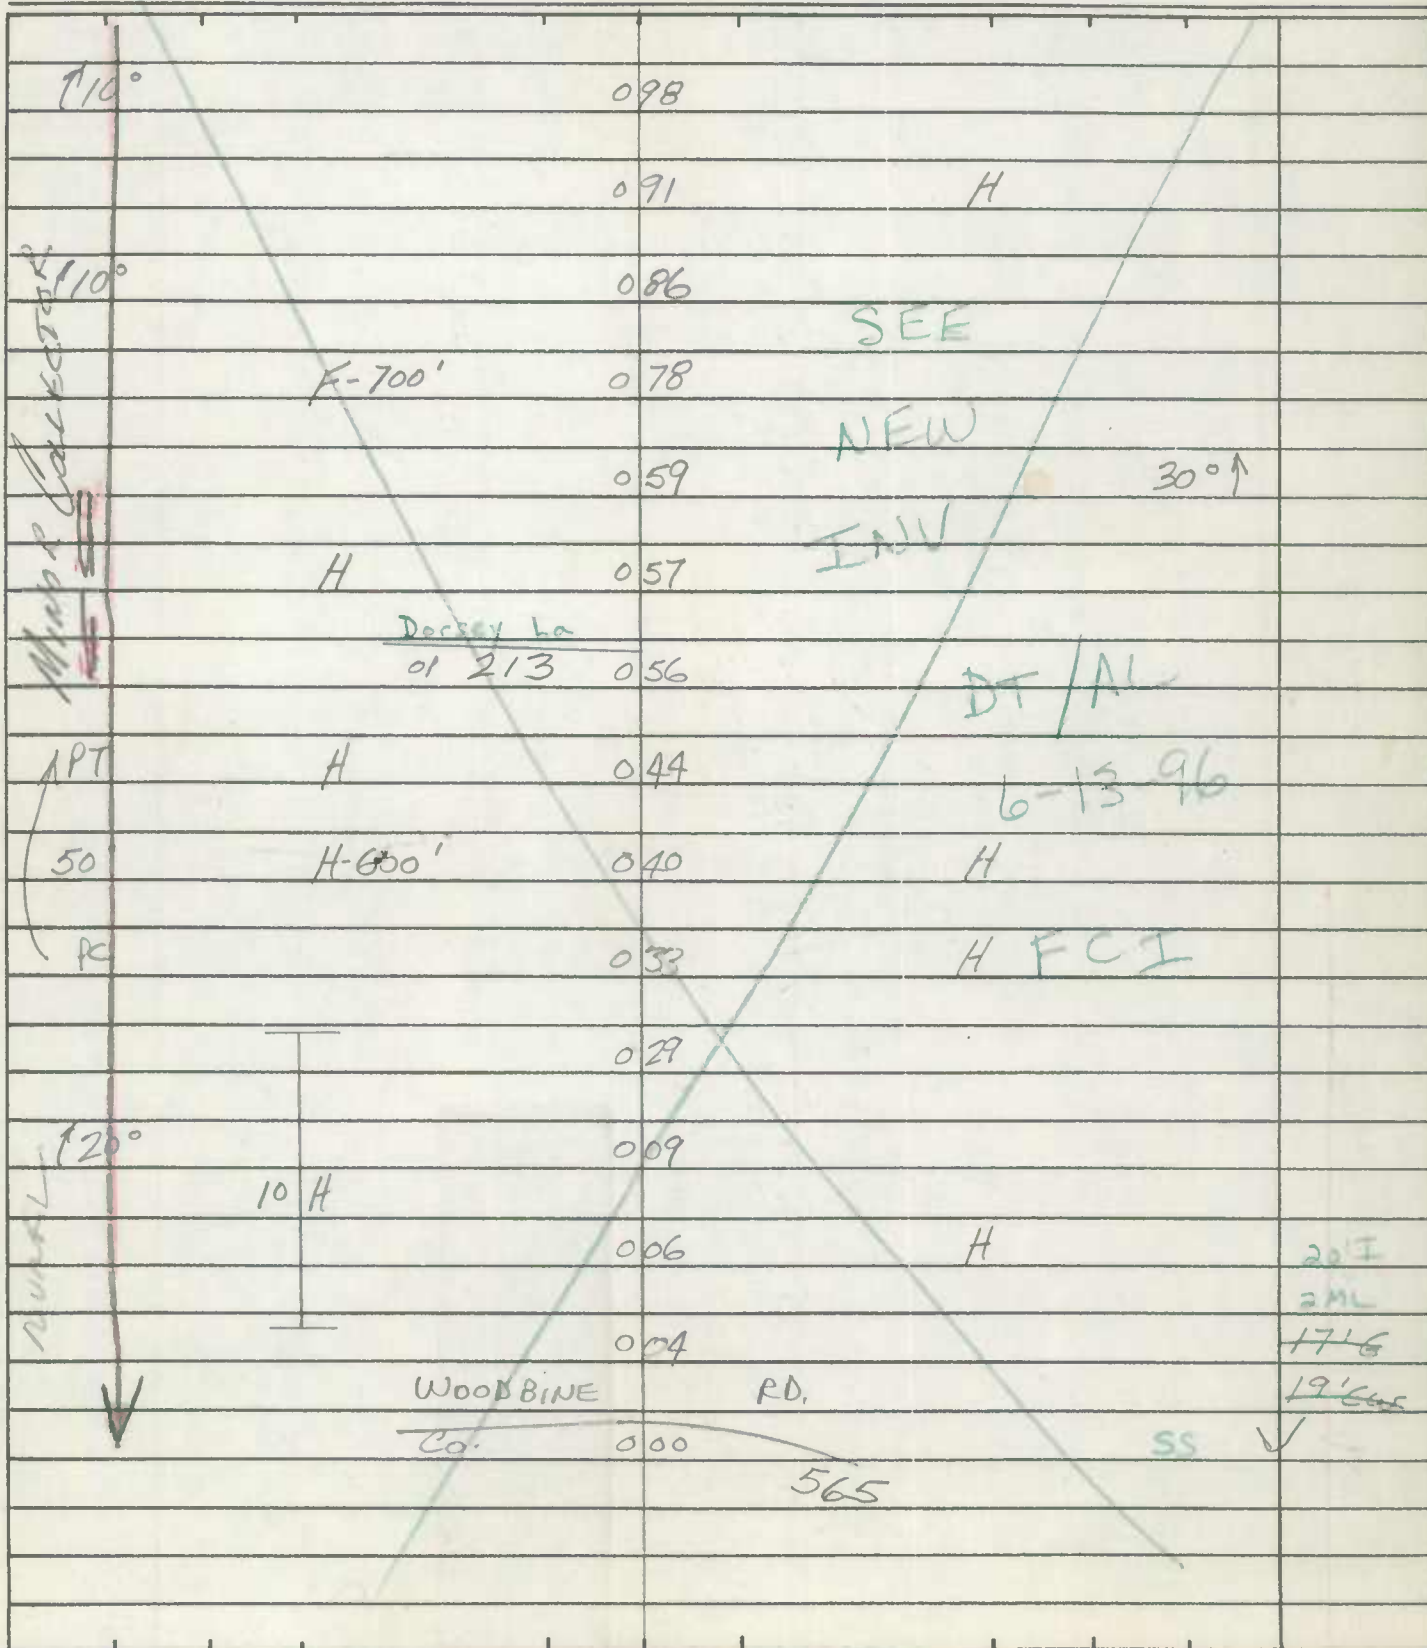 ↑10° 098
091 H
↑10° 086
SEE
F-700' 078
NEW
059 30°↑
INV
H 057
Dorsey La
01 213 056
DT / AL
PT H 044
6-13-96
50 H-600' 040 H
PC 033 H FCI
029
↑20° 009
10 H
006 H 20' I
2ML
004 17' G
WOODBINE RD. 19'
Co. 000 SS
565
MINOR COLLECTOR
RURAL